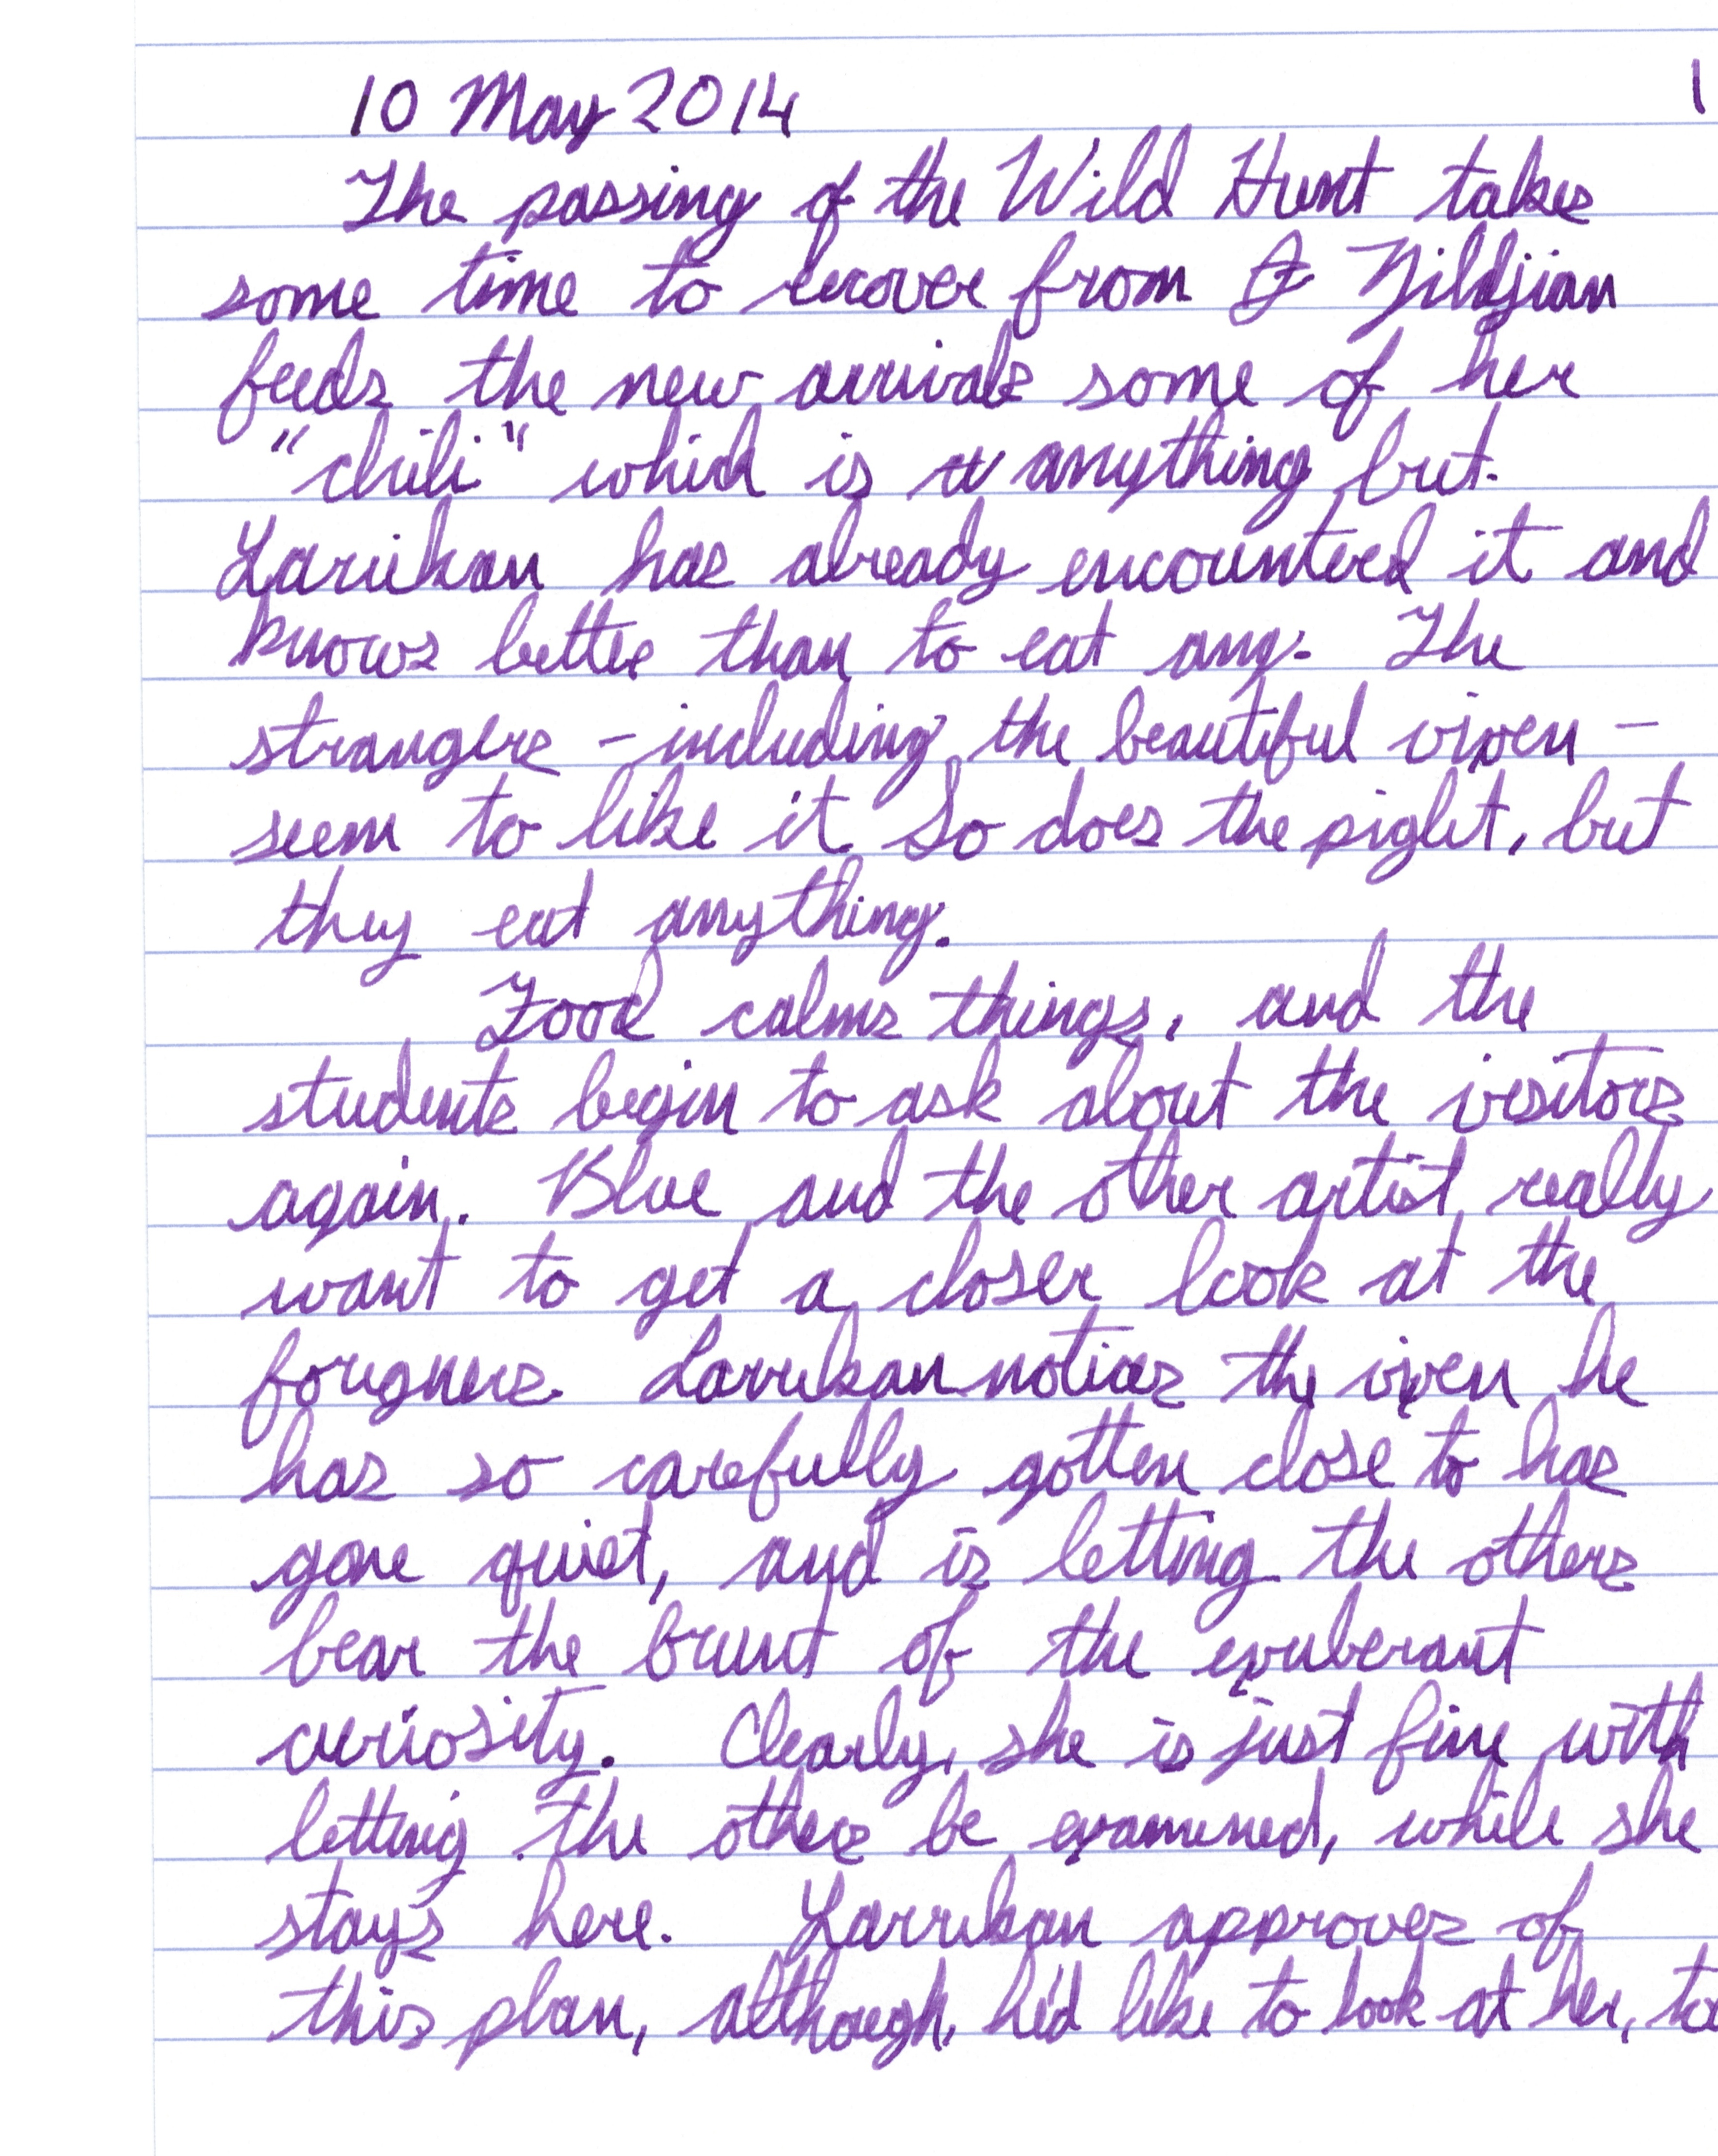 10 May 2014 1
The passing of the Wild Hunt takes
some time to recover from Zildjian
feeds the new arrivals some of her
"chili" which is anything but.
Larrikan has already encountered it and
knows better than to eat any. The
strangers - including the beautiful vixen -
seem to like it So does the piglet, but
they eat anything.
Food calms things, and the
students begin to ask about the visitors
again. Blue and the other artist really
want to get a closer look at the
foreigners. Larrikan notices the vixen he
has so carefully gotten close to has
gone quiet, and is letting the others
bear the brunt of the exuberant
curiosity. Clearly, she is just fine with
letting the others be examined, while she
stays here. Larrikan approves of
this plan, although, he'd like to look at her, too